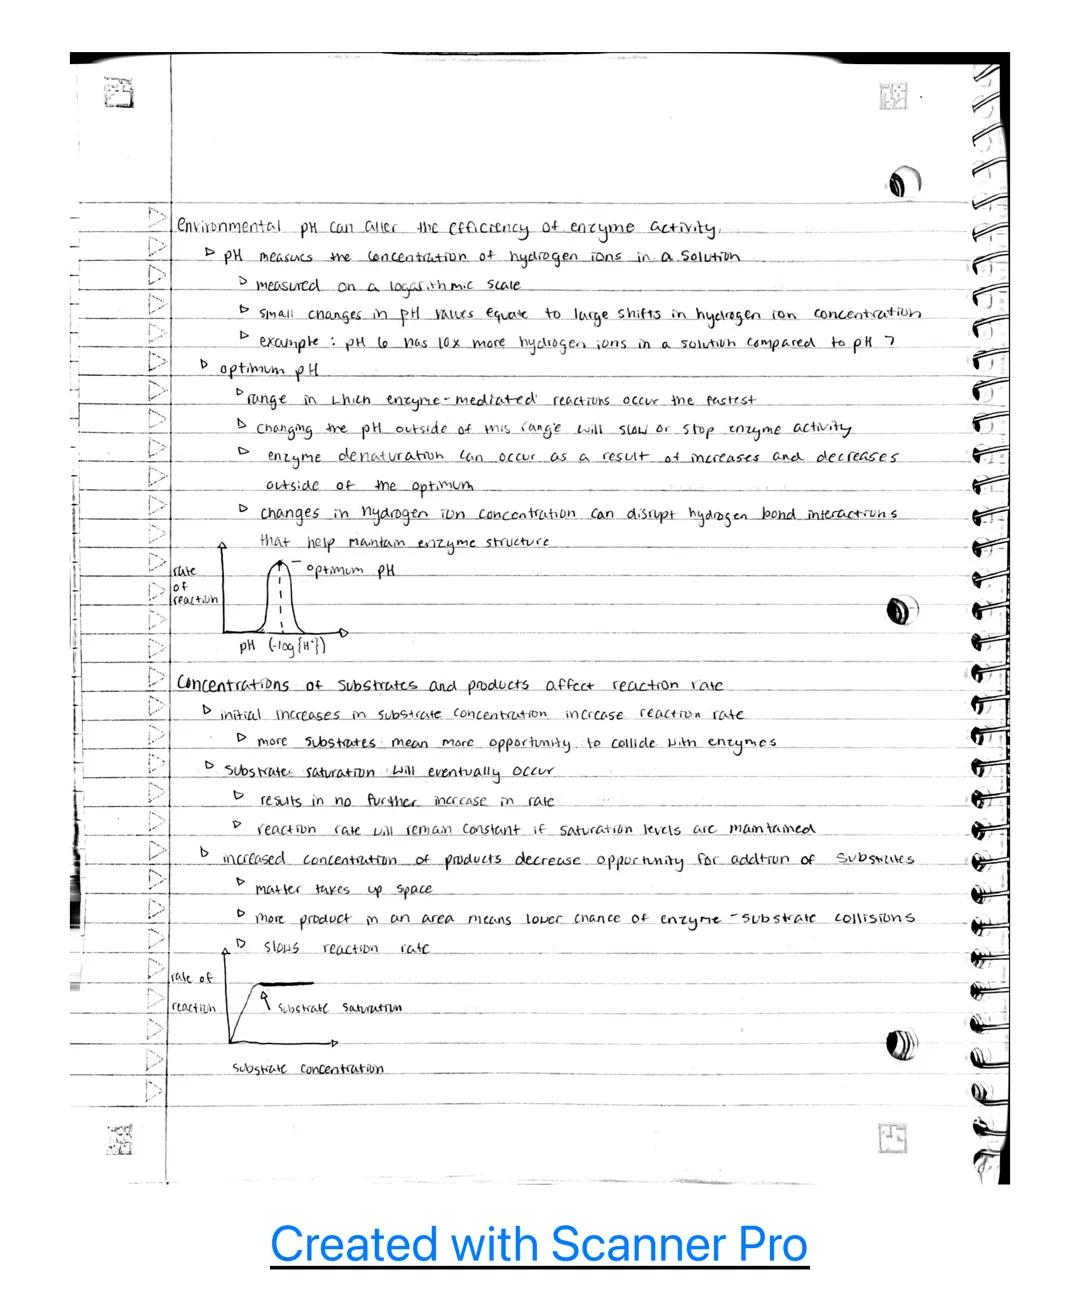 environmental pH can alter the efficiency of enzyme activity.
▹ pH measures the concentration of hydrogen ions in a solution
▹ measured on a logarithmic scale
▹ small changes in pH values equate to large shifts in hydrogen ion concentration
▹ example : pH 6 has 10x more hydrogen ions in a solution compared to pH 7
▹ optimum pH
▹ range in which enzyme-mediated reactions occur the fastest
▹ changing the pH outside of this range will slow or stop enzyme activity
▹ enzyme denaturation can occur as a result of increases and decreases
outside of the optimum
▹ changes in hydrogen ion concentration can disrupt hydrogen bond interactions
that help maintain enzyme structure
rate
of
reaction
optimum pH
pH (-log{H⁺})
Concentrations of substrates and products affect reaction rate
▹ initial increases in substrate concentration increase reaction rate
▹ more substrates mean more opportunity to collide with enzymes
▹ substrate saturation will eventually occur
▹ results in no further increase in rate
▹ reaction rate will remain constant if saturation levels are maintained
▹ increased concentration of products decrease opportunity for addition of substrates
▹ matter takes up space
▹ more product in an area means lower chance of enzyme-substrate collisions
▹ slows reaction rate
rate of
reaction
substrate saturation
substrate concentration
Created with Scanner Pro